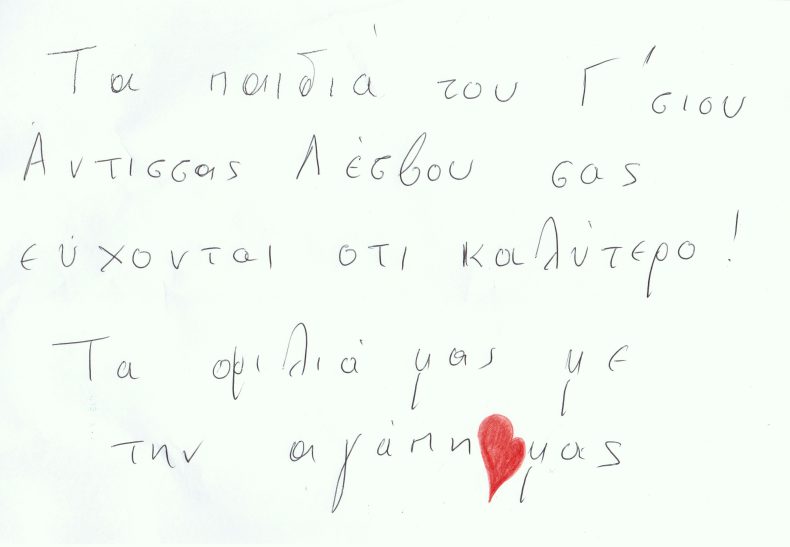 Τα παιδιά του Γ΄σιου
Άντισσας Λέσβου σας
εύχονται οτι καλύτερο!
Τα φιλιά μας με
την αγάπη μας